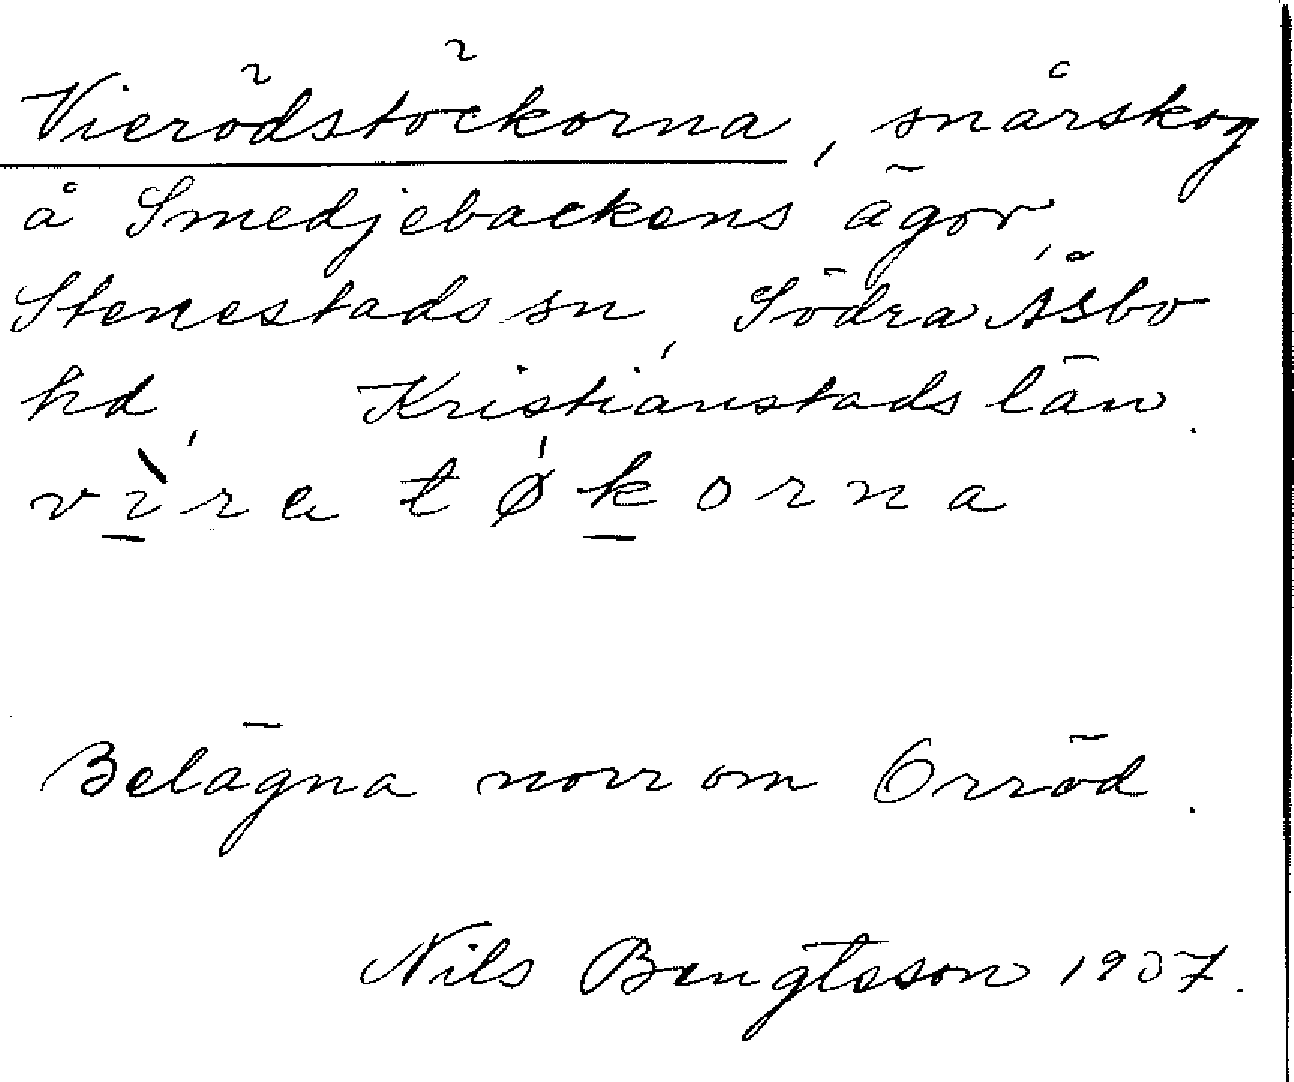 Vierödstöckorna, snårskog
å Smedjebackens ägor,
Stenestads sn, Södra Åsbo
hd, Kristianstads län.
vìrətǿkorna
Belägna norr om Orröd.
Nils Bengtsson 1937.